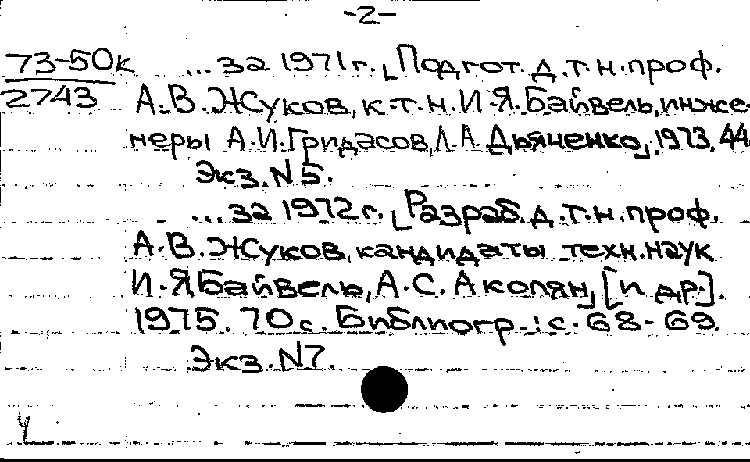 -2-
73-50к ... за 1971 г. [Подгот. д.т.н. проф.
2743 А.В. Жуков, к.т.н. И.Я. Байвель, инже-
неры А.И. Гридасов, Л.А. Дьяченко], 1973, 44
Экз. N 5.
... за 1972 г. [Разраб. д.т.н. проф.
А.В. Жуков, кандидаты техн. наук
И.Я. Байвель, А.С. Акопян, [и др.].
1975. 70 с. Библиогр.: с. 68-69.
Экз. N 7.